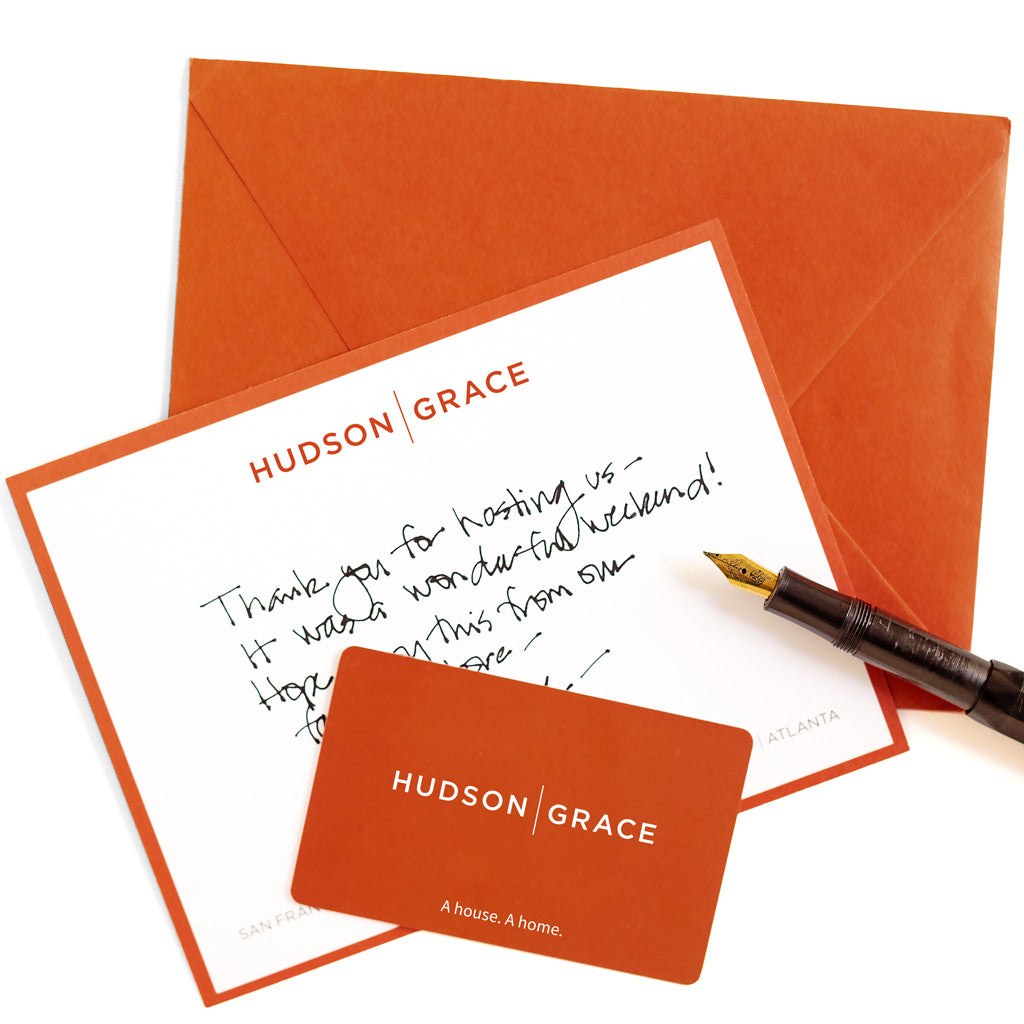 HUDSON | GRACE
Thank you for hosting us –
It was a wonderful weekend!
Hope this from our
–
ATLANTA
HUDSON | GRACE
A house. A home.
SAN FRAN